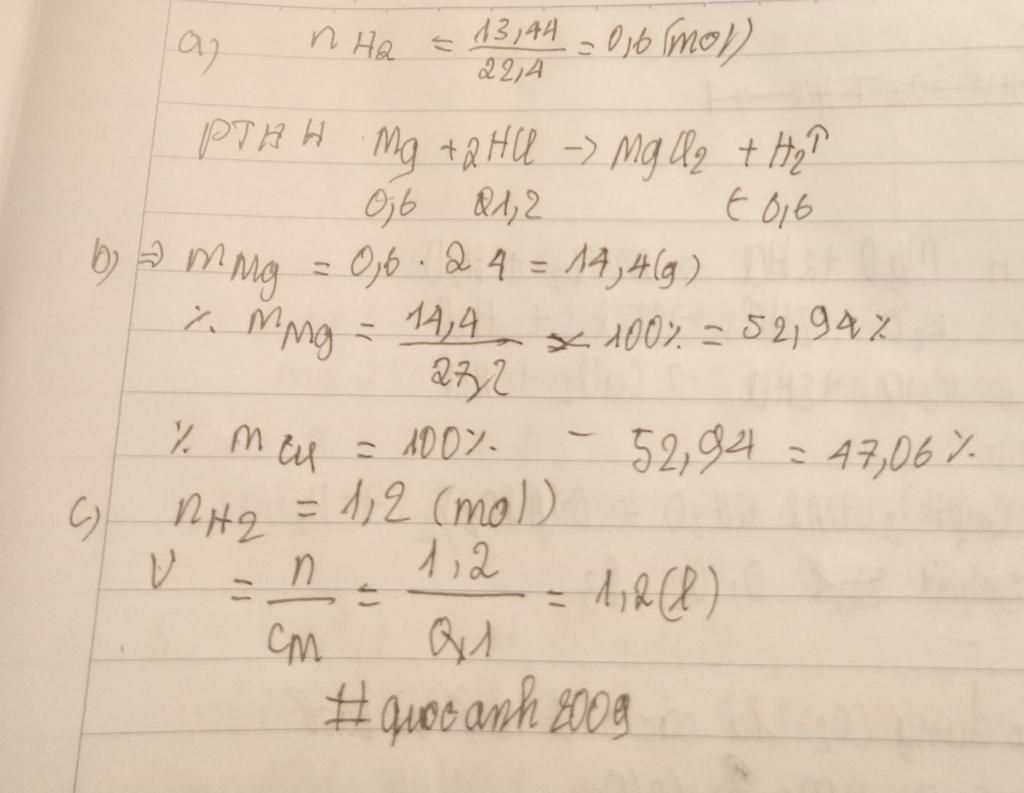 a) nH2 = 13,44/22,4 = 0,6 (mol)
PTHH Mg + 2HCl → MgCl2 + H2↑
0,6 1,2 ← 0,6
b) ⇒ mMg = 0,6 · 24 = 14,4(g)
% mMg = 14,4/27,2 × 100% = 52,94%
% mCu = 100% - 52,94 = 47,06%
c) nH2 = 1,2 (mol)
V = n/CM = 1,2/0,1 = 1,2(l)
#quocanh2009